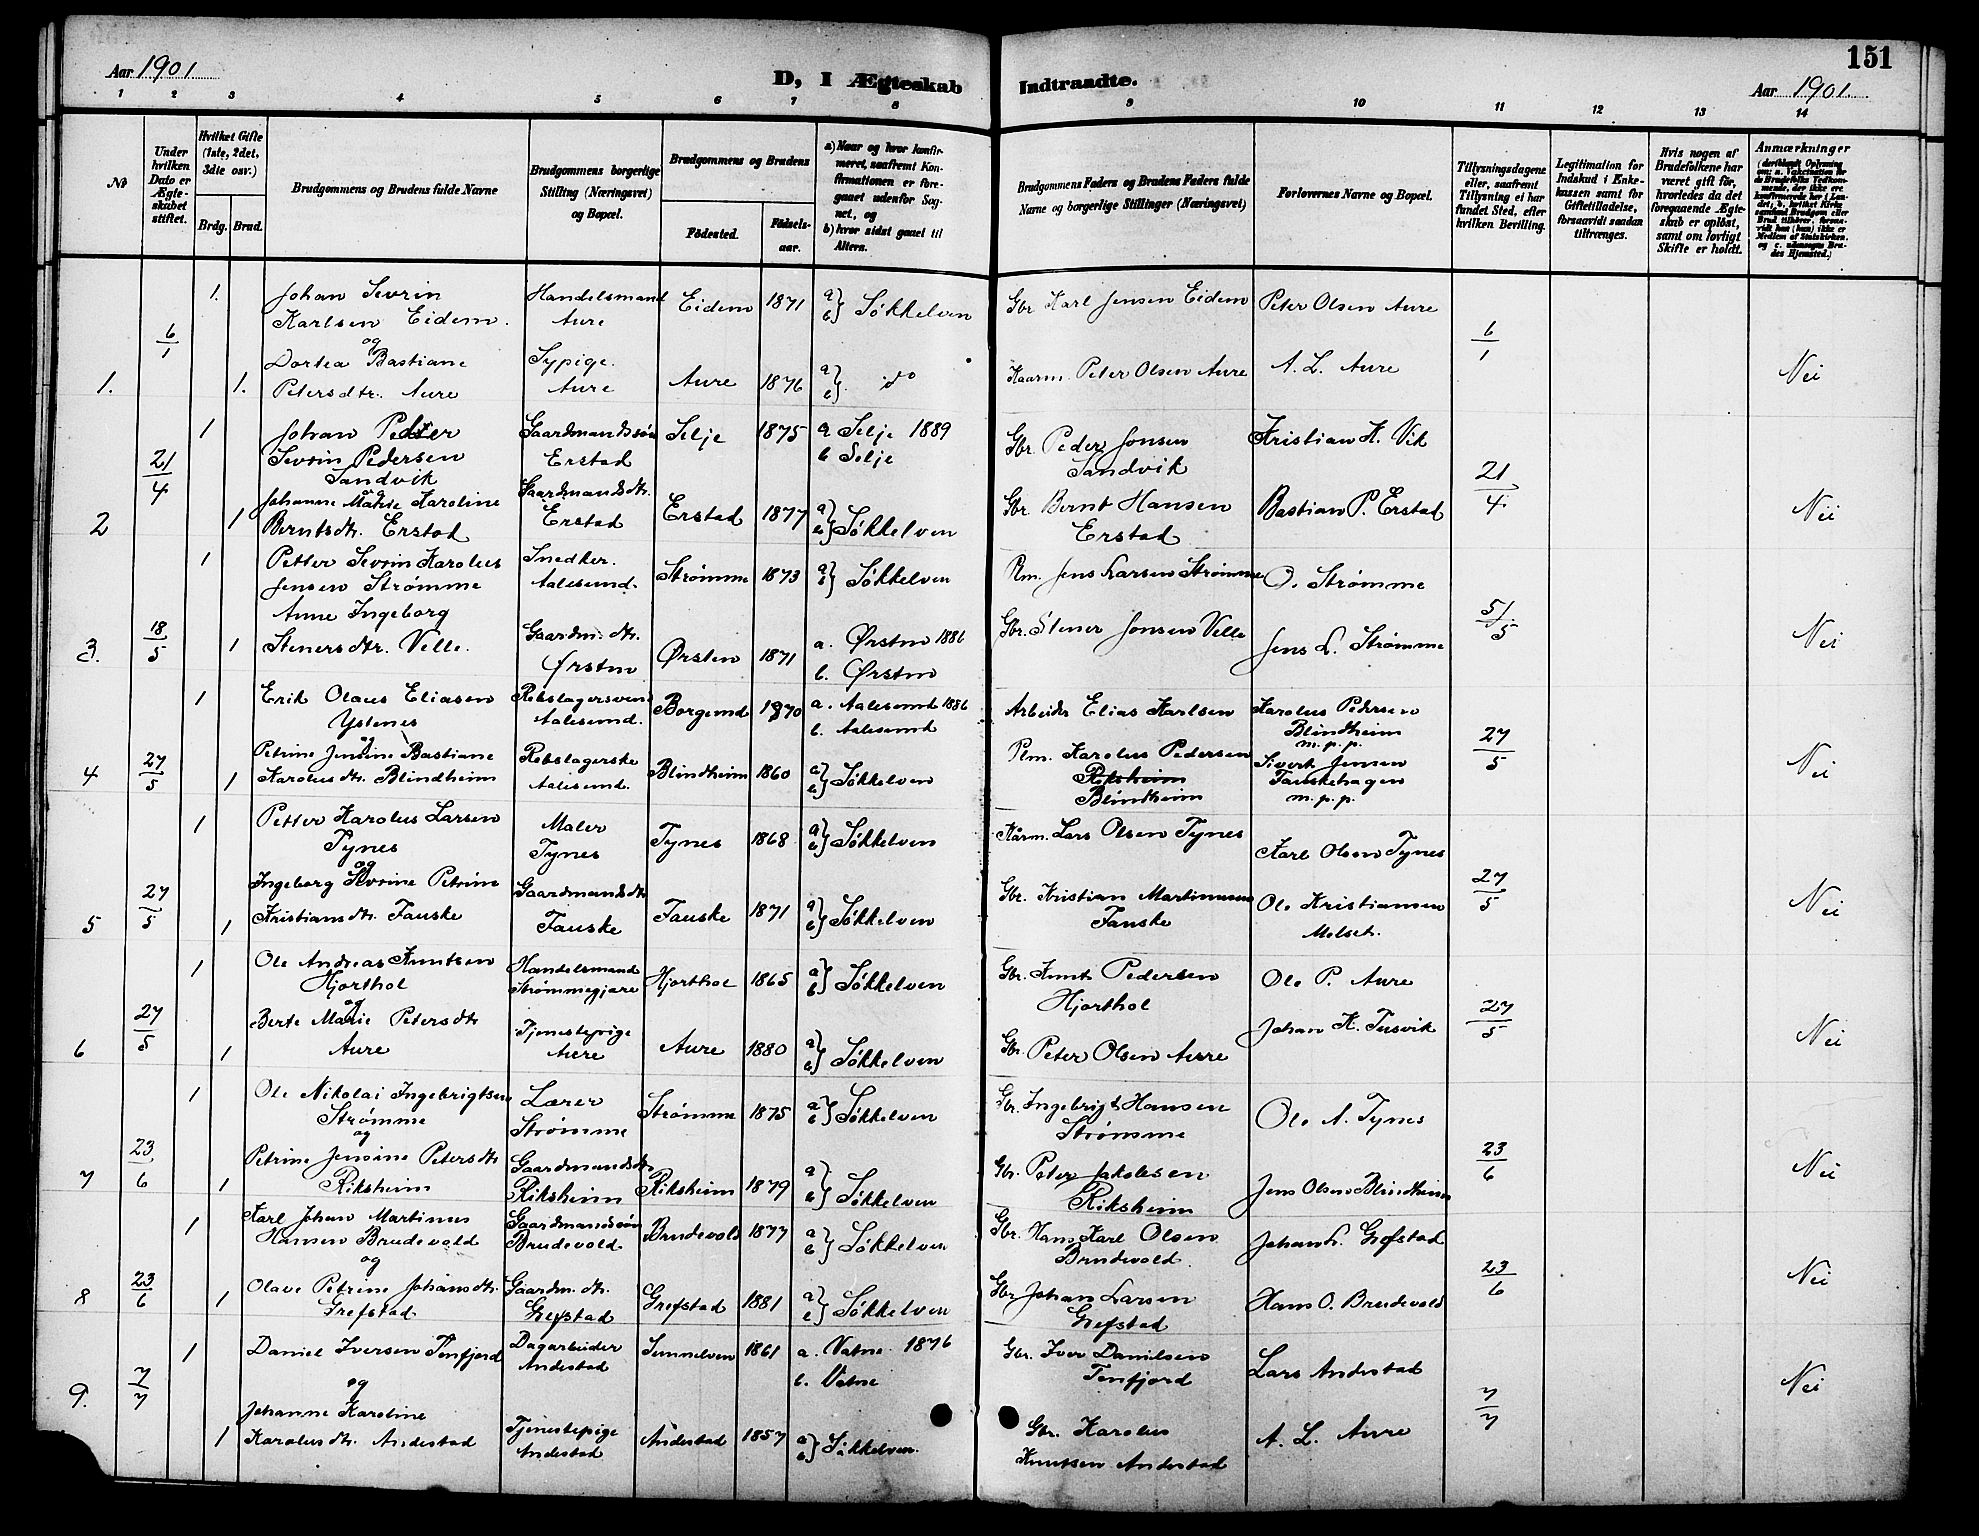 151
Aar 1901
D, I Ægteskab Indtraadte.
Aar 1901.
1 2 3 4 5 6 7 8 9 10 11 12 13 14
№
Under hvilken Dato er Ægteskabet stiftet.
Hvilket Gifte (1ste, 2det, 3die osv.)
Brdg. Brud.
Brudgommens og Brudens fulde Navne
Brudgommens borgerlige Stilling (Næringsvei) og Bopæl.
Brudgommens og Brudens
Födested.
Födselsaar.
a) Naar og hvor konfirmeret, saafremt Konfirmationen er foregaaet udenfor Sognet, og
b) hvor sidst gaaet til Alters.
Brudgommens Faders og Brudens Faders fulde Navne og borgerlige Stillinger (Næringsvei)
Forlovernes Navne og Bopæl.
Tillysningsdagene eller, saafremt Tillysning ei har fundet Sted, efter hvilken Bevilling.
Legitimation for Indskud i Enkekassen samt for Giftetilladelse, forsaavidt saadan tiltrænges.
Hvis nogen af Brudefolkene har været gift för, hvorledes da det foregaaende Ægteskab er oplöst, samt om lovligt Skifte er holdt.
Anmærkninger
1. 6/1
1. Johan Sevrin Karlsen Eidem. Handelsmand Aure Eidem 1871 a} b} Søkkelven Gbr. Karl Jensen Eidem Peter Olsen Aure 6/1
og
1. Dortea Bastiane Petersdtr. Aure Sypige. Aure Aure 1876 a} b} do Kaarm. Peter Olsen Aure A. L. Aure Nei
2 21/4
1 Johan Petter Sevrin Pedersen Sandvik Gaardmandssøn Erstad Selje 1875 a Selje 1889 b Selje Gbr. Peder Jonsen Sandvik Kristian K. Vik 21/4
og
1 Johanne Matide Karoline Berntsdtr. Erstad Gaardmandsdtr. Erstad Erstad 1877 a} b} Søkkelven Gbr. Bernt Hansen Erstad Bastian P. Erstad Nei
3. 18/5
1 Petter Sevrin Karolus Jensen Strømme Snedker. Aalesund. Strømme 1873 a} b} Søkkelven Plm. Jens Larsen Strømme O. Strømme 5/5
1 Anne Ingeborg Stenersdtr. Velle. Gaardm. dtr. Ørsten Ørsten 1871 a. Ørsten 1886 b. Ørsten Gbr. Stener Jonsen Velle Jens L. Strømme Nei
4 27/5
1 Erik Olaus Eliasen Ystenes Rebslagersvend Aalesund. Borgund 1870 a. Aalesund 1886 b. Aalesund Arbeider Elias Karlsen Karolus Pedersen Blindheim m.p.p. 27/5
og
1 Petrine Jensine Bastiane Karolusdtr. Blindheim Rebslagerske Aalesund. Blindheim 1860 a} b} Søkkelven Plm. Karolus Pedersen Riksheim Blindheim Sivert Jensen Fauskehagen m.p.p. Nei
5 27/5
1 Petter Karolus Larsen Tynes Maler Tynes Tynes 1868 a} b} Søkkelven Kårm. Lars Olsen Tynes Karl Olsen Tynes 27/5
og
1 Ingeborg Sevrine Petrine Kristiansdtr. Fauske Gaardmandsdtr Fauske Fauske 1871 a} b} Søkkelven Gbr. Kristian Martinussen Fauske Ole Kristiansen Melset. Nei
6 27/5
1 Ole Andreas Knutsen Hjorthol Handelsmand Strømmegjære Hjorthol 1865 a} b} Søkkelven Gbr. Knut Pedersen Hjorthol Ole P. Aure 27/5
og
1 Berte Marie Petersdtr Aure Tjenestepige Aure Aure 1880 a} b} Søkkelven Gbr. Peter Olsen Aure Johan K. Tusvik Nei
7 23/6
1 Ole Nikolai Ingebrigtsen Strømme Lærer Strømme Strømme 1875 a} b} Søkkelven Gbr. Ingebrigt Hansen Strømme Ole A. Tynes 23/6
og
1 Petrine Jensine Petersdtr Riksheim Gaardmandsdtr Riksheim Riksheim 1879 a} b} Søkkelven Gbr. Peter Jakobsen Riksheim Jens Olsen Blindheim Nei
8 23/6
1 Karl Johan Martinus Hansen Brudevold Gaardmandssøn Brudevold Brudevold 1877 a} b} Søkkelven Gbr. Hans Karl Olsen Brudevold. Johan L. Grefstad 23/6
og
1 Olave Petrine Johansdtr. Grefstad Gaardm. dtr. Grefstad Grefstad 1881 a} b} Søkkelven Gbr Johan Larsen Grefstad Hans O. Brudevold Nei
9. 7/7
1 Daniel Iversen Tenfjord Dagarbeider Andestad Sunnelven 1861 a. Vatne 1876 b. Vatne Gbr. Iver Danielsen Tenfjord Lars Andestad 7/7
og
1 Johanne Karoline Karolusdtr. Andestad Tjenestepige Andestad Andestad 1857 a} b} Søkkelven. Gbr. Karolus Knutsen Andestad A. L. Aure Nei